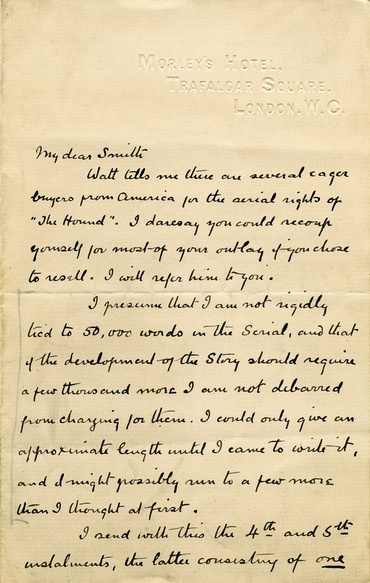 MORLEY'S HOTEL.
TRAFALGAR SQUARE.
LONDON. W.C.
My dear Smith
Watt tells me there are several eager
buyers from America for the serial rights of
"The Hound". I daresay you could recoup
yourself for most of your outlay if you chose
to resell. I will refer him to you.
I presume that I am not rigidly
tied to 50,000 words in the Serial, and that
if the development of the Story should require
a few thousand more I am not debarred
from charging for them. I could only give an
approximate length until I came to write it,
and it might possibly run to a few more
than I thought at first.
I send with this the 4th and 5th
instalments, the latter consisting of one